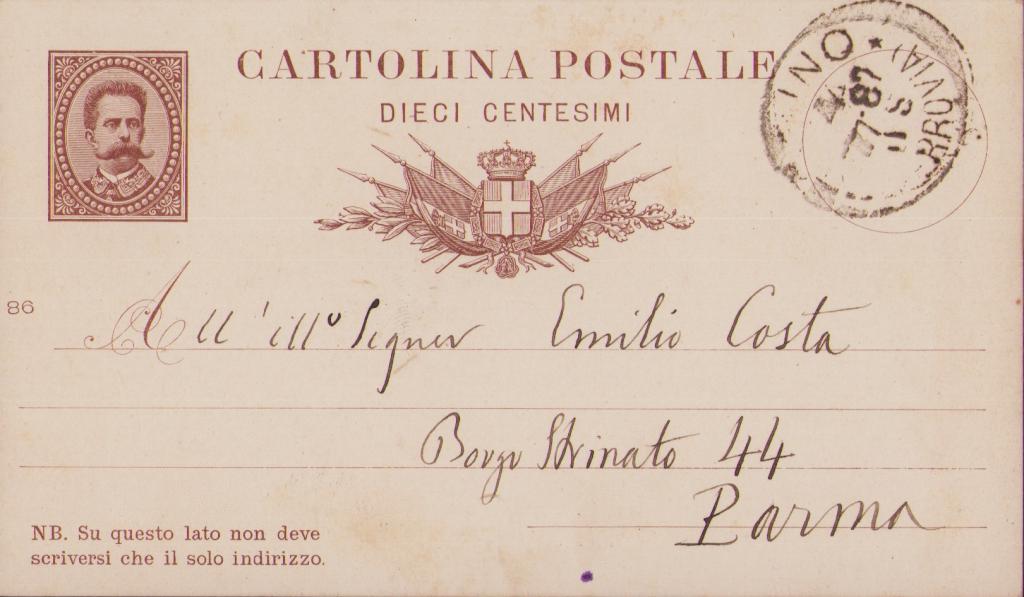 CARTOLINA POSTALE
DIECI CENTESIMI
INO *
7-87
11 S
RROVIA)
86
All'illº Signor Emilio Costa
Borgo Strinato 44
Parma
NB. Su questo lato non deve
scriversi che il solo indirizzo.